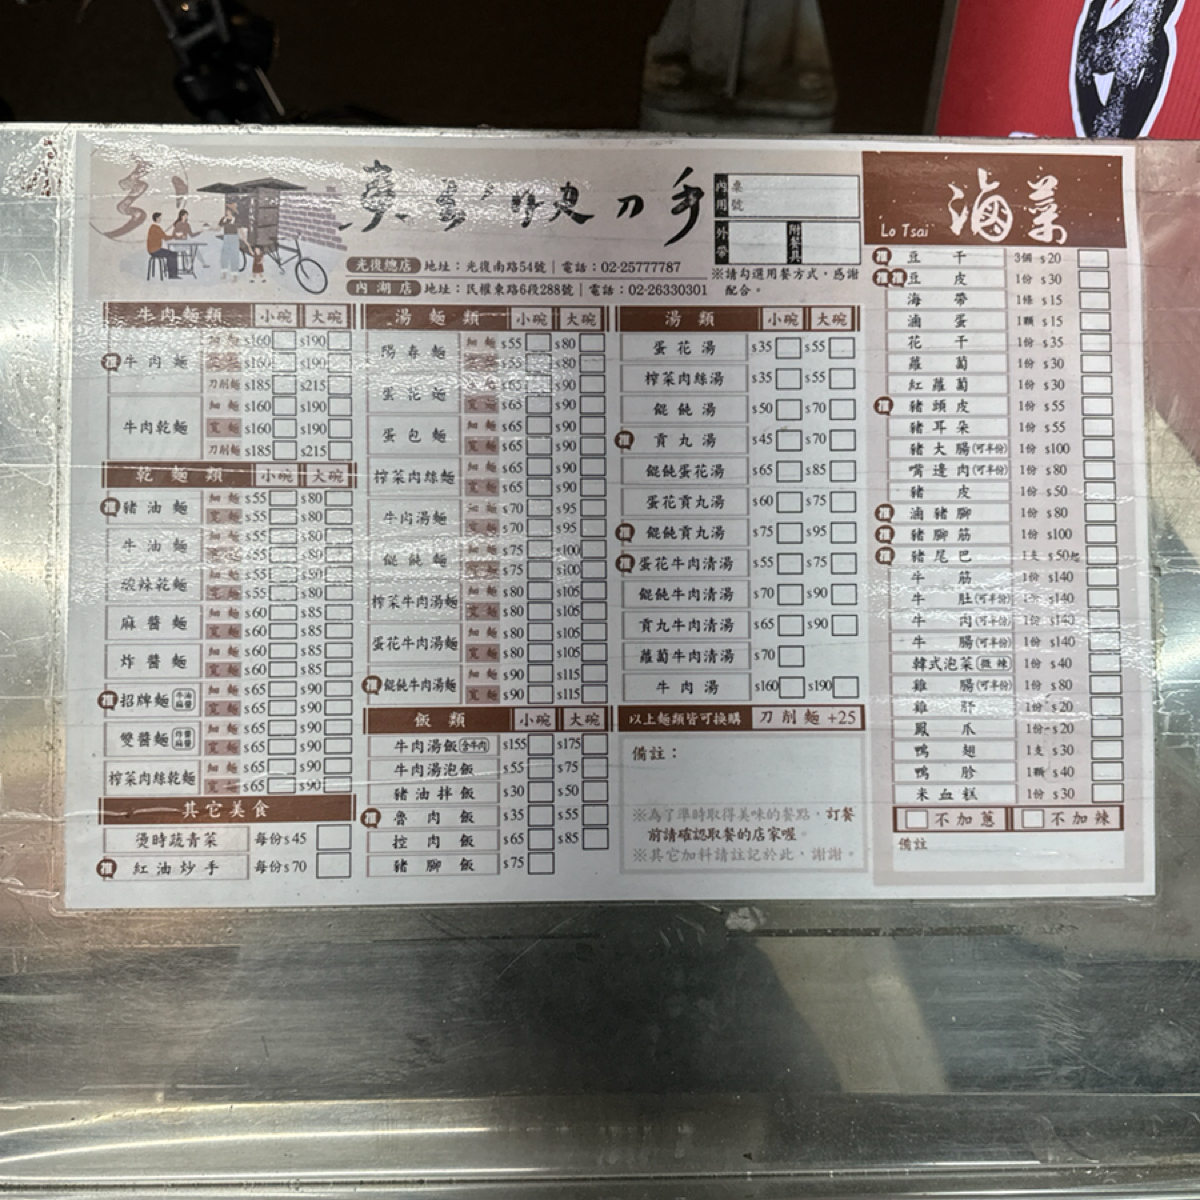 東 快刀手
內用 桌號
外帶 附餐具
※請勾選用餐方式，感謝配合。
光復總店 地址：光復南路54號 | 電話：02-25777787
內湖店 地址：民權東路6段288號 | 電話：02-26330301
牛肉麵類 小碗 大碗
推 牛肉麵 細麵 $160 $190
$160 $190
刀削麵 $185 $215
牛肉乾麵 細麵 $160 $190
寬麵 $160 $190
刀削麵 $185 $215
乾麵類 小碗 大碗
推 豬油麵 細麵 $55 $80
寬麵 $55 $80
牛油麵 細麵 $55 $80
寬麵 $55 $80
酸辣乾麵 細麵 $55 $80
寬麵 $55 $80
麻醬麵 細麵 $60 $85
寬麵 $60 $85
炸醬麵 細麵 $60 $85
寬麵 $60 $85
推 招牌麵 細麵 $65 $90
寬麵 $65 $90
雙醬麵 細麵 $65 $90
寬麵 $65 $90
榨菜肉絲乾麵 細麵 $65 $90
寬麵 $65 $90
其它美食
燙時蔬青菜 每份$45
推 紅油炒手 每份$70
湯麵類 小碗 大碗
陽春麵 細麵 $55 $80
寬麵 $55 $80
蛋花麵 細麵 $65 $90
寬麵 $65 $90
蛋包麵 細麵 $65 $90
寬麵 $65 $90
榨菜肉絲麵 細麵 $65 $90
寬麵 $65 $90
牛肉湯麵 細麵 $70 $95
寬麵 $70 $95
餛飩麵 細麵 $75 $100
寬麵 $75 $100
榨菜牛肉湯麵 細麵 $80 $105
寬麵 $80 $105
蛋花牛肉湯麵 細麵 $80 $105
寬麵 $80 $105
推 餛飩牛肉湯麵 細麵 $90 $115
寬麵 $90 $115
飯類 小碗 大碗
牛肉湯飯(含牛肉) $155 $175
牛肉湯泡飯 $55 $75
豬油拌飯 $30 $50
推 魯肉飯 $35 $55
控肉飯 $65 $85
豬腳飯 $75
湯類 小碗 大碗
蛋花湯 $35 $55
榨菜肉絲湯 $35 $55
餛飩湯 $50 $70
推 貢丸湯 $45 $70
餛飩蛋花湯 $65 $85
蛋花貢丸湯 $60 $75
推 餛飩貢丸湯 $75 $95
推 蛋花牛肉清湯 $55 $75
餛飩牛肉清湯 $70 $90
貢丸牛肉清湯 $65 $90
蘿蔔牛肉清湯 $70
牛肉湯 $160 $190
以上麵類皆可換購 刀削麵 +25
備註：
※為了準時取得美味的餐點，訂餐
前請確認取餐的店家喔。
※其它加料請註記於此，謝謝。
Lo Tsai 滷菜
推 豆干 3個 $20
推 推 豆皮 1份 $30
海帶 1條 $15
滷蛋 1顆 $15
花干 1份 $35
蘿蔔 1份 $30
紅蘿蔔 1份 $30
推 豬頭皮 1份 $55
豬耳朵 1份 $55
豬大腸(可半份) 1份 $100
嘴邊肉(可半份) 1份 $80
豬皮 1份 $50
推 滷豬腳 1份 $80
推 豬腳筋 1份 $100
推 豬尾巴 1支 $50起
牛筋 1份 $140
牛肚(可半份) 1份 $140
牛肉(可半份) 1份 $140
牛腸(可半份) 1份 $140
韓式泡菜(微辣) 1份 $40
雞腸(可半份) 1份 $80
雞肝 1份 $20
鳳爪 1份 $20
鴨翅 1支 $30
鴨胗 1顆 $40
米血糕 1份 $30
不加蔥 不加辣
備註